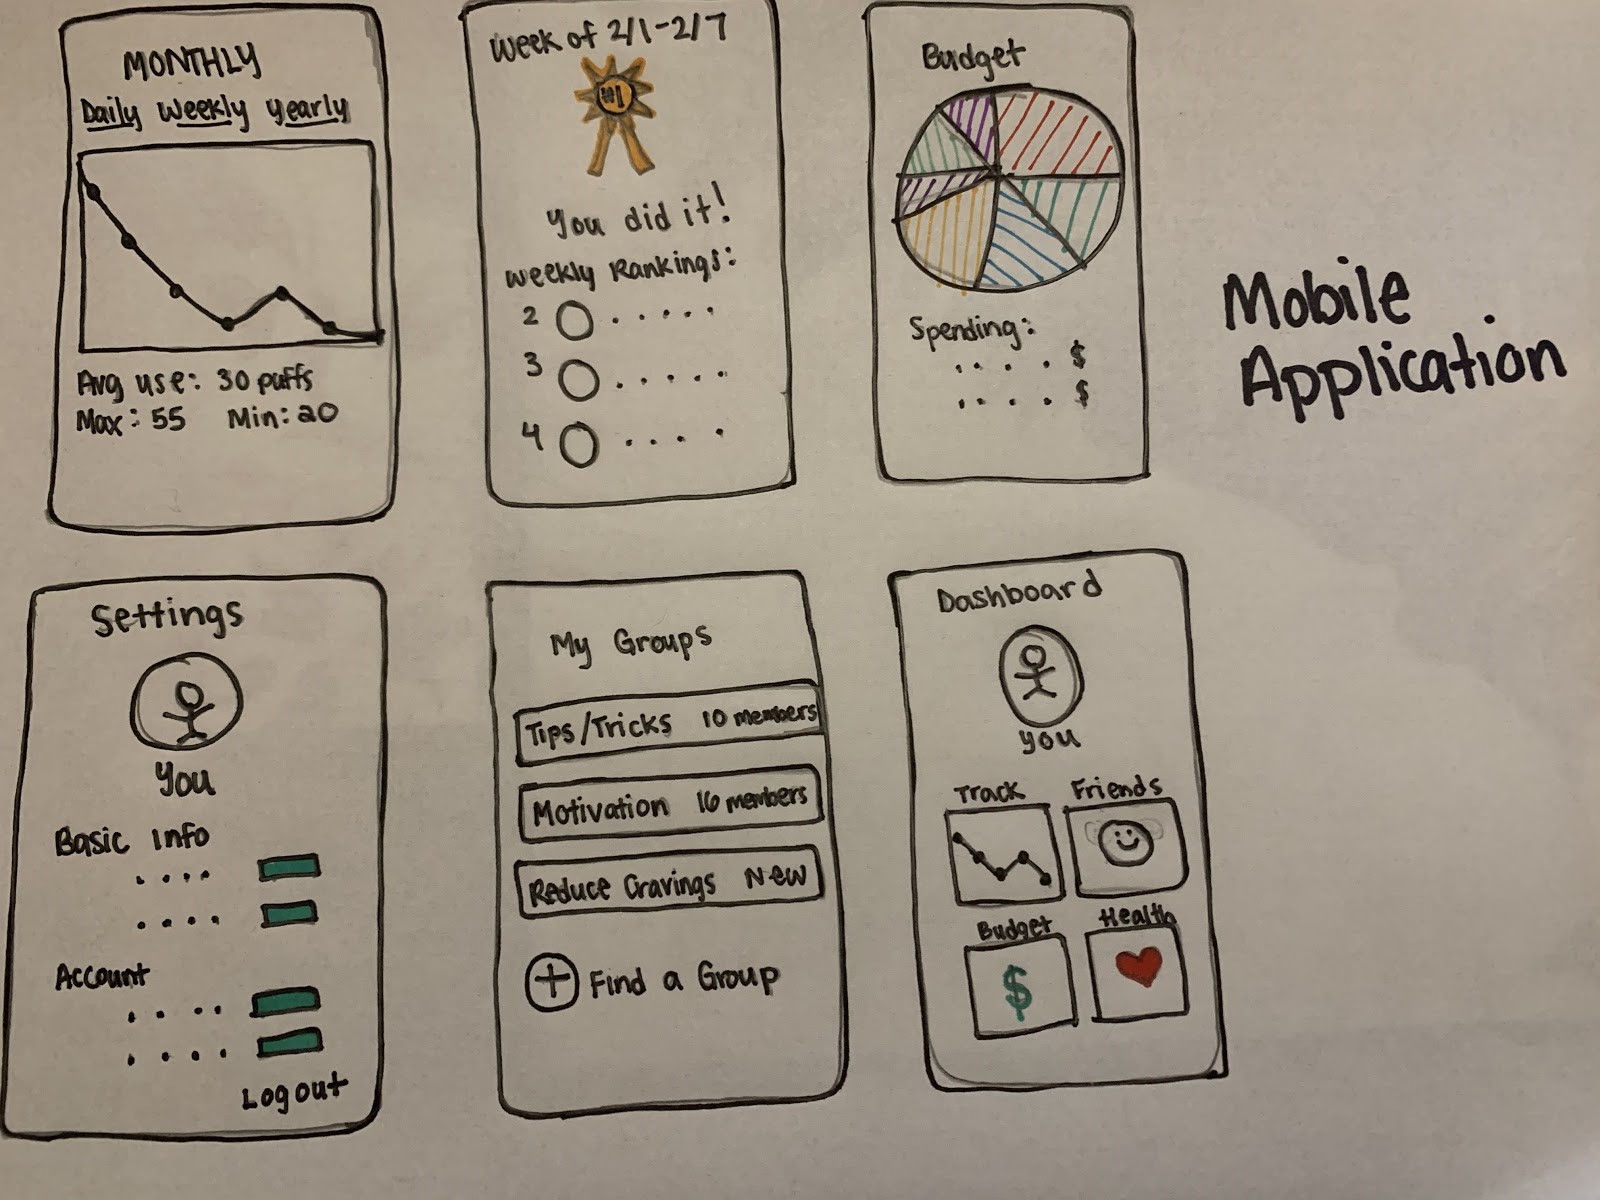 MONTHLY
Daily Weekly Yearly
Avg use: 30 puffs
Max: 55 Min: 20
Week of 2/1-2/7
#1
You did it!
Weekly Rankings:
2
3
4
Budget
Spending:
$
$
Mobile
Application
Settings
You
Basic Info
Account
Log out
My Groups
Tips/Tricks 10 members
Motivation 16 members
Reduce Cravings New
+ Find a Group
Dashboard
you
Track Friends
Budget Health
$